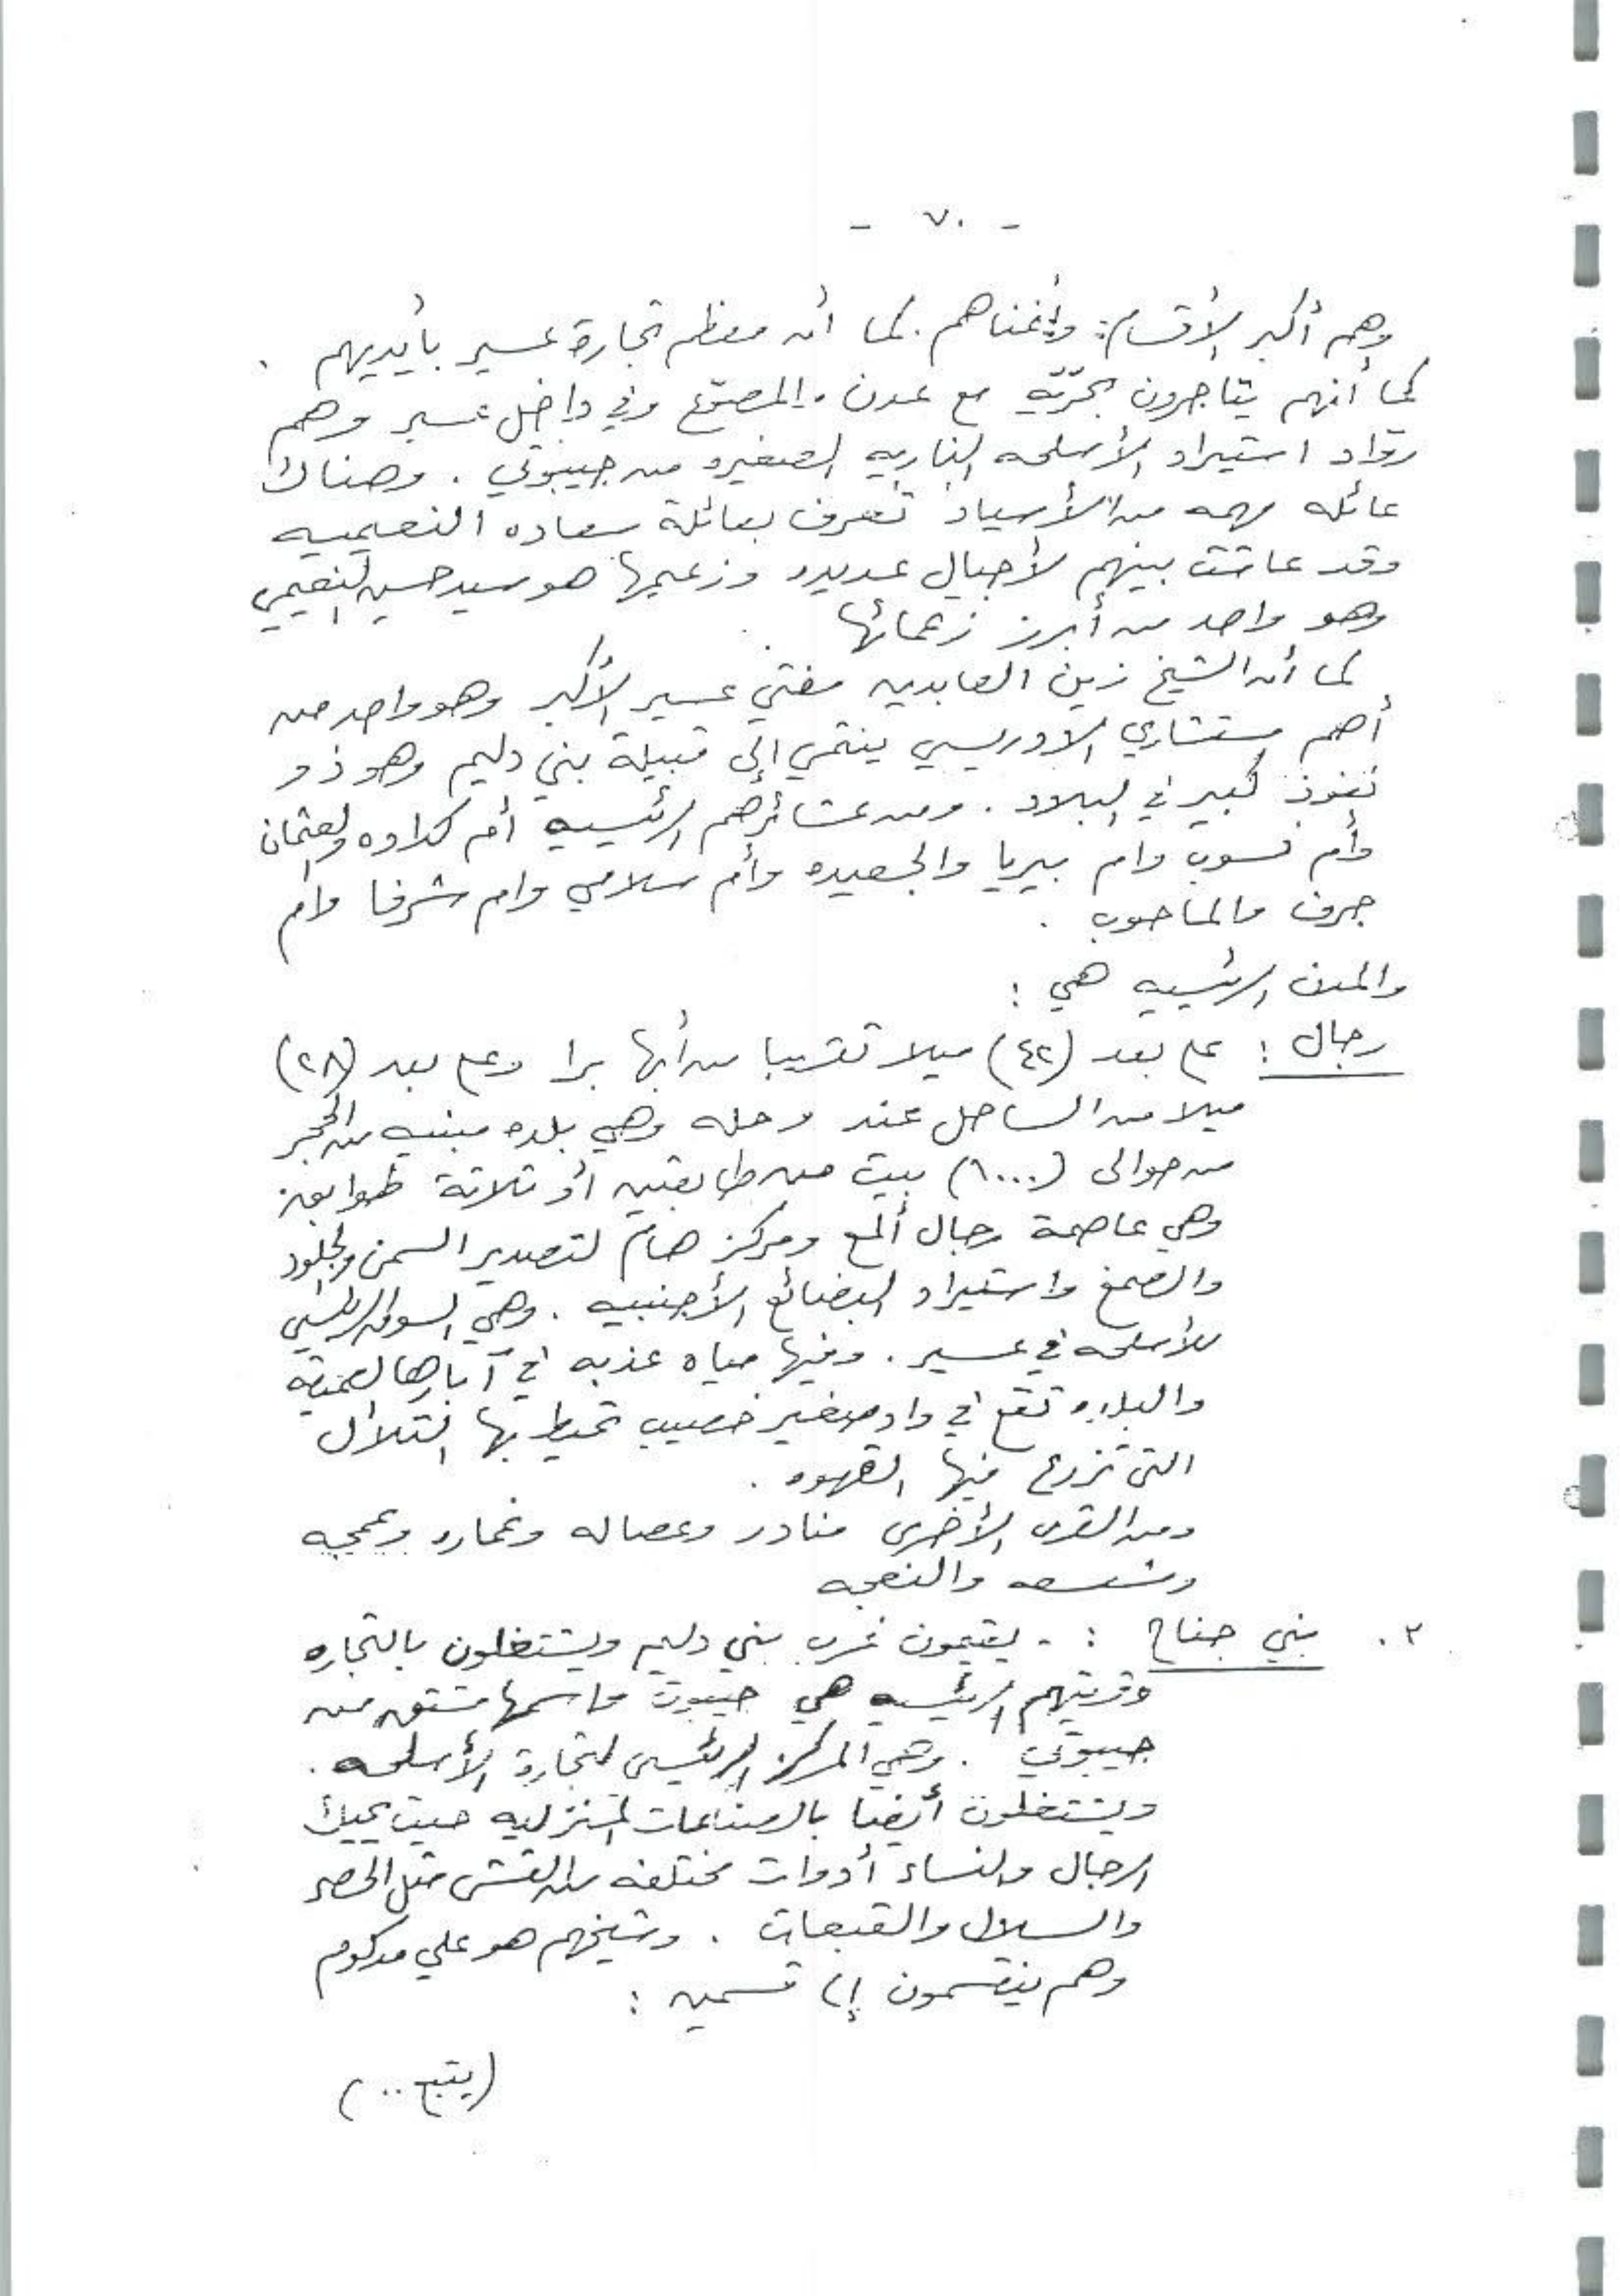 - ٧٠ -
وهم أكبر الأقسام: وأغناهم. كما أن معظم تجارة عسير بأيديهم .
كما أنهم يتاجرون بحرّيّه مع عدن والمصوّع وفي داخل عسير وهم
روّاد استيراد الأسلحه الناريه الصغيره من جيبوتي . وهناك
عائله مهمه من الأسياد تعرف بعائلة سعاده النعيميه
وقد عاشت بينهم لأجيال عديده وزعيمها هو سيد حسين النعيمي
وهو واحد من أبرز زعمائها
كما أن الشيخ زين العابدين مفتي عسير الأكبر وهو واحد من
أهم مستشاري الادريسي ينتمي إلى قبيلة بني دليم وهو ذو
نفوذ كبير في البلاد . ومن عشائرهم الرئيسيه أم كداوه والعثمان
وأم نسوب وام بيريا والجعيده وأم سلامي وام شرفا وأم
جرف والماحوب .
والمدن الرئيسيه هي :
رجال : على بعد (٤٢) ميلا تقريبا من أبها برا وعلى بعد (٢٨)
ميلا من الساحل عند وحله وهي بلده مبنيه من الحجر
من حوالى (١٠٠٠) بيت من طابقين أو ثلاثة طوابق
وهي عاصمة رجال ألمع ومركز هام لتصدير السمن والجلود
والصمغ واستيراد البضائع الأجنبيه . وهي السوق الرئيسي
للأسلحه في عسير . وفيها مياه عذبه في آبارها العميقه
والبلده تقع في واد صغير خصيب تحيط بها التلال
التى تزرع فيها القهوه .
ومن القرى الأخرى منادر وعصاله وغماره وعمجه
والنعجه
٢. بني جناح : - يقيمون غرب بني دليم ويشتغلون بالتجاره
وقريتهم الرئيسيه هي جيبوت واسمها مشتق من
جيبوتي . وهي المركز الرئيسى لتجارة الأسلحه .
ويشتغلون أيضا بالصناعات المنزليه حيث يحيك
الرجال والنساء أدوات مختلفه من القش مثل الحصر
والسلال والقبعات . وشيخهم هو علي مدكوم
وهم ينقسمون إلى قسمين :
(يتبع ..)